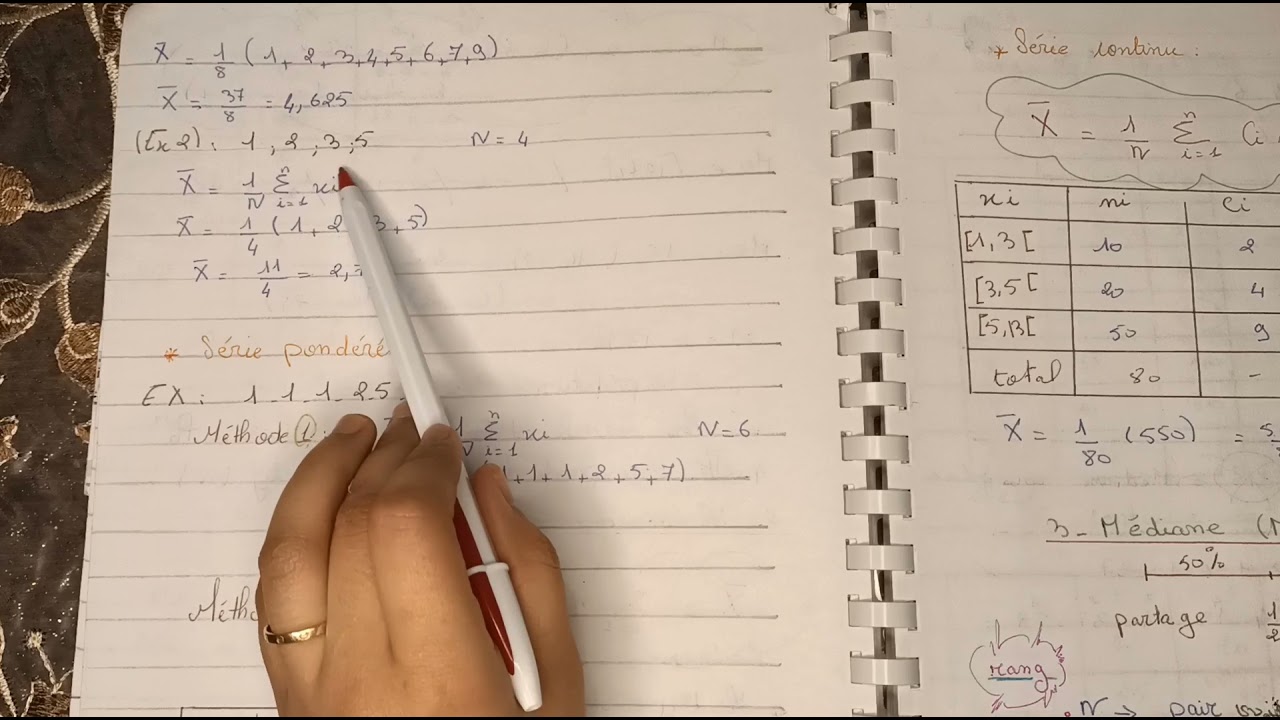 X̄ = 1/8 (1, 2, 3, 4, 5, 6, 7, 9)
X̄ = 37/8 = 4,625
(Ex 2) : 1 , 2 , 3 , 5 N = 4
X̄ = 1/N Σ i=1 n xi
X̄ = 1/4 (1, 2 3, 5)
X̄ = 11/4 = 2,7
* Série pondéré
EX : 1 _ 1 _ 1 _ 2 _ 5
Méthode 1 : 1 Σ i=1 n xi N = 6
1 + 1 + 1 + 2 + 5 + 7)
* Série continu :
X̄ = 1/N Σ i=1 n Ci
xi ni Ci
[1,3[ 10 2
[3,5[ 20 4
[5,13[ 50 9
total 80 -
X̄ = 1/80 (550) =
3 _ Médiane
50%
partage 1/2
rang
. N → pair